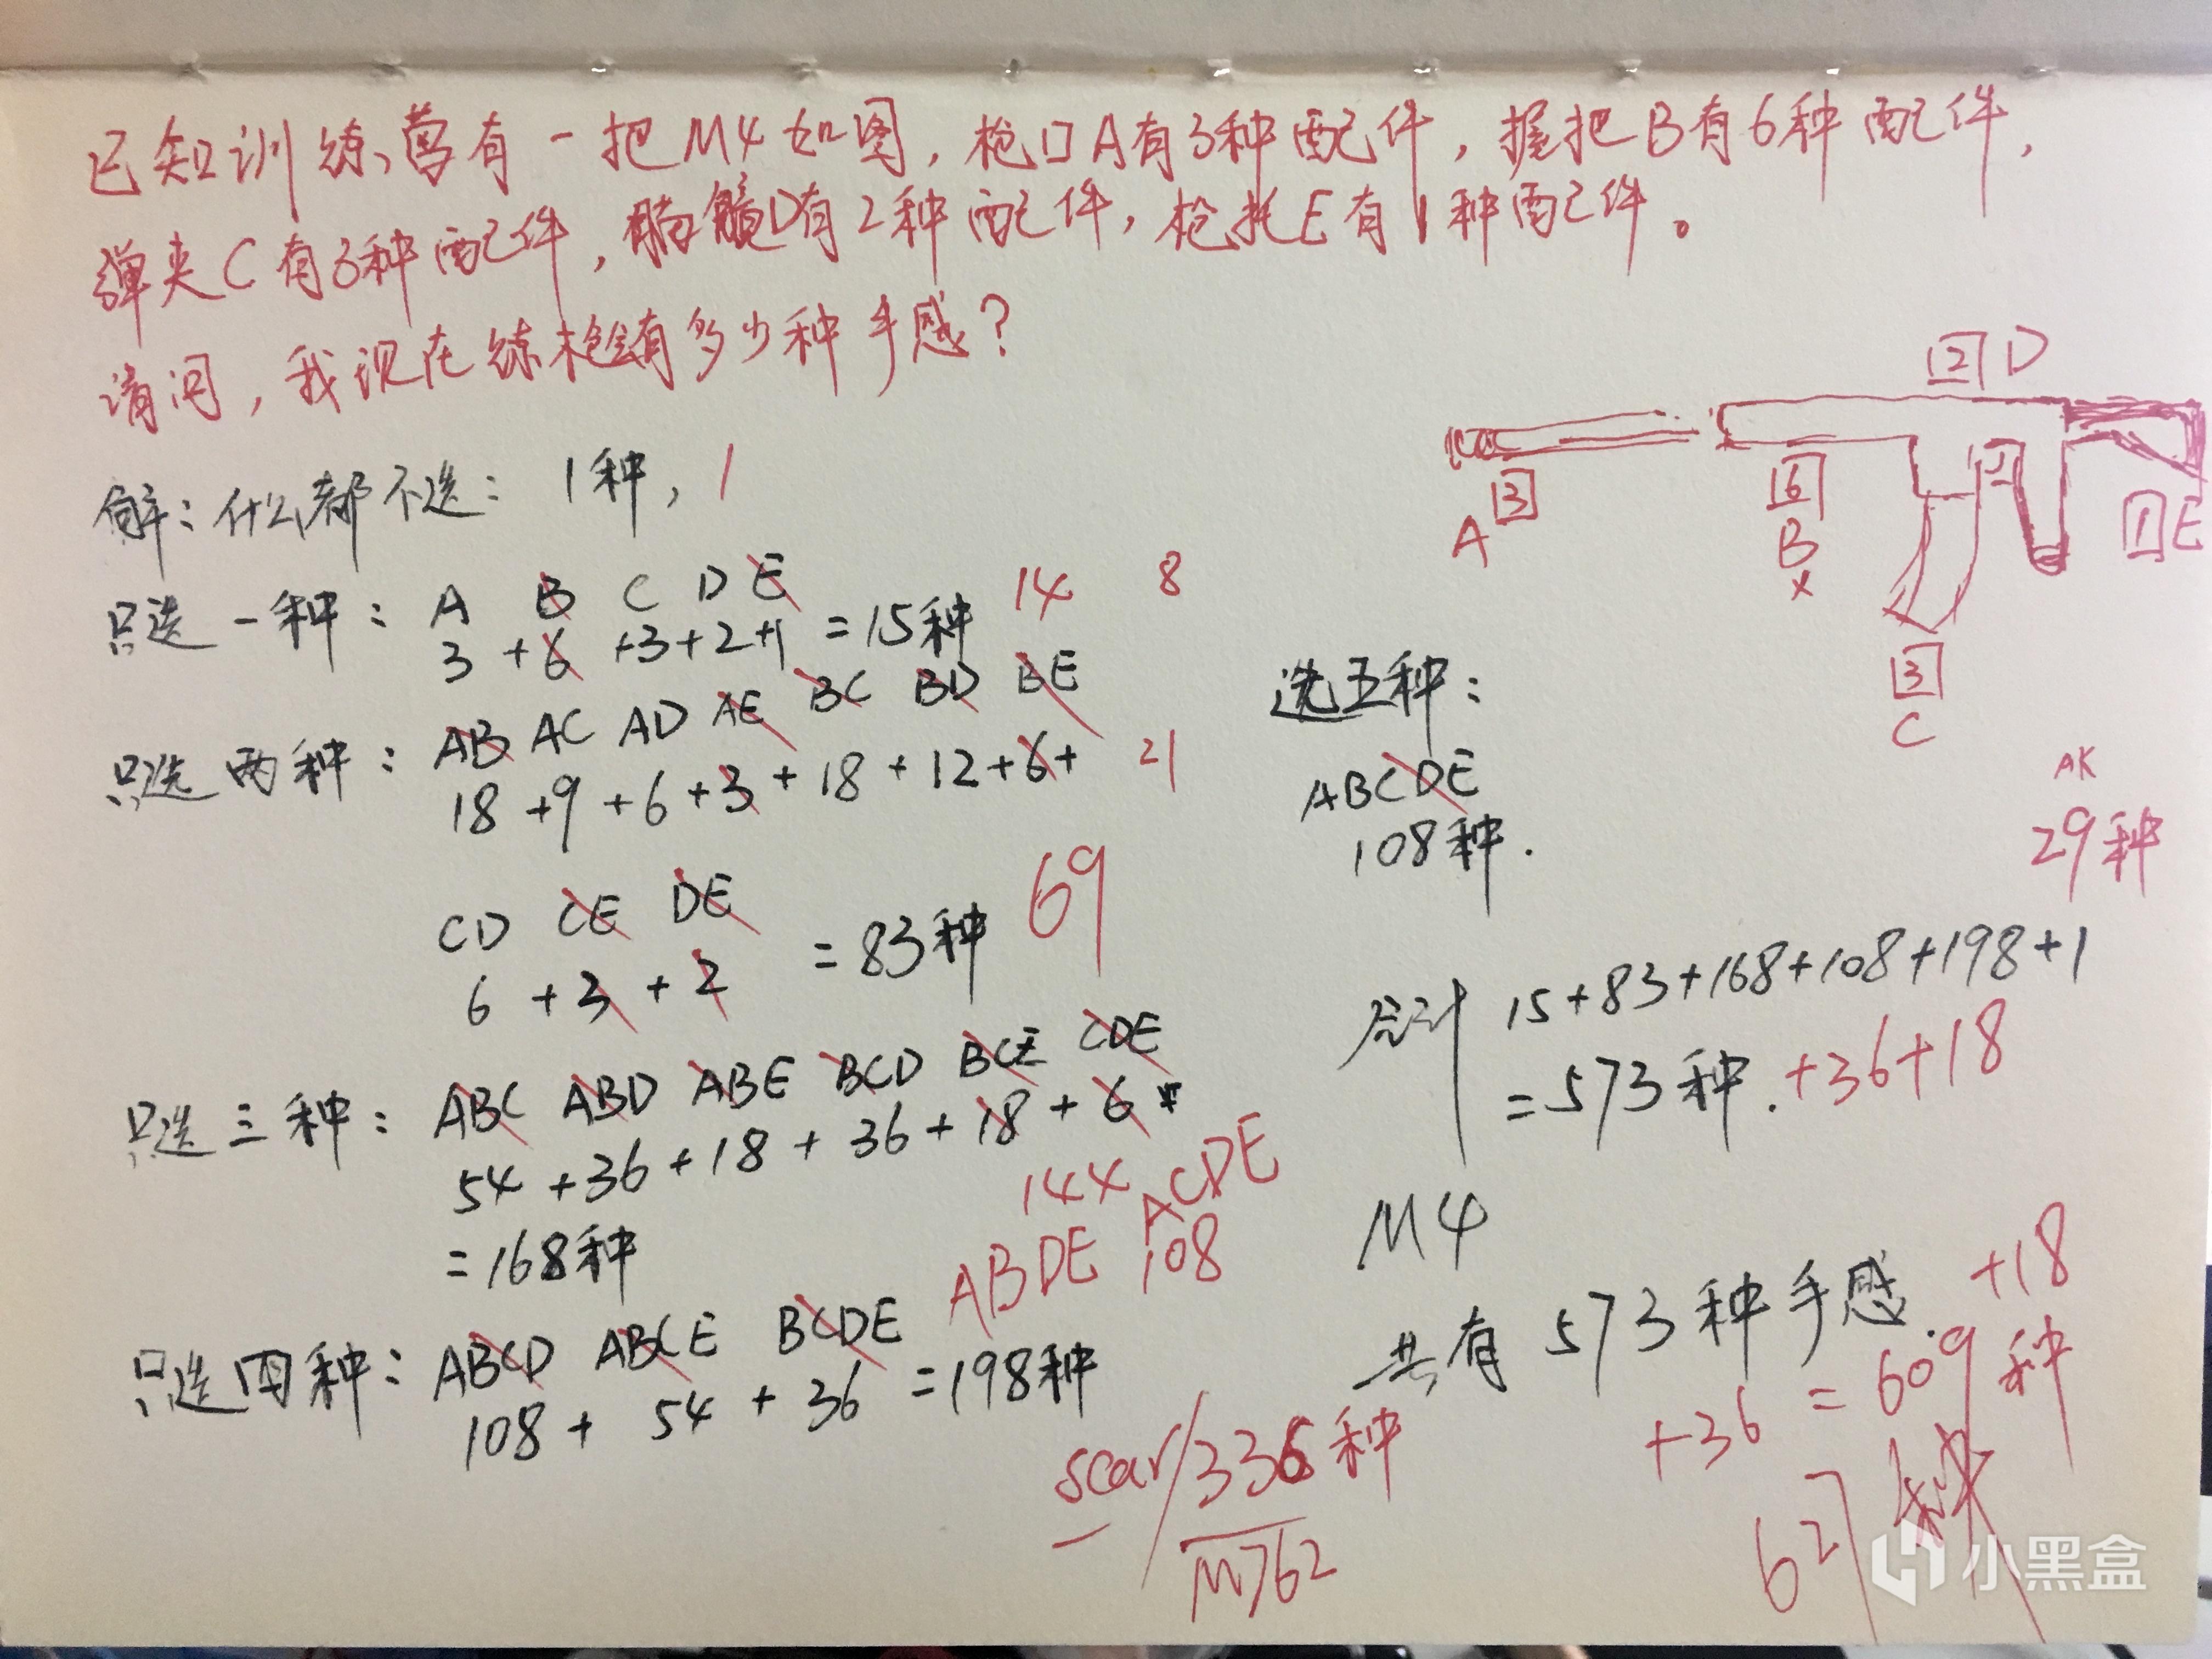 已知训练营有一把M4如图，枪口A有3种配件，握把B有6种配件，
弹夹C有3种配件，瞄镜D有2种配件，枪托E有1种配件。
请问，我现在练枪会有多少种手感？
2 D
A 3
6 B ×
1 E
3 C
解：什么都不选： 1种， 1
只选一种： A B C D E
3 + 6 + 3 + 2 + 1 = 15种 14 8
只选两种： AB AC AD AE BC BD BE
18 + 9 + 6 + 3 + 18 + 12 + 6 + 21
CD CE DE
6 + 3 + 2 = 83种 69
只选三种： ABC ABD ABE BCD BCE CDE
54 + 36 + 18 + 36 + 18 + 6
= 168种
144 ACDE
ABDE 108
只选四种： ABCD ABCE BCDE
108 + 54 + 36 = 198种
scar/336种
M762
选五种：
ABCDE
108种.
AK
29种
合计 15+83+168+108+198+1
=573种. +36+18
M4
共有573种手感. +18
+36 = 609种
627种
小黑盒